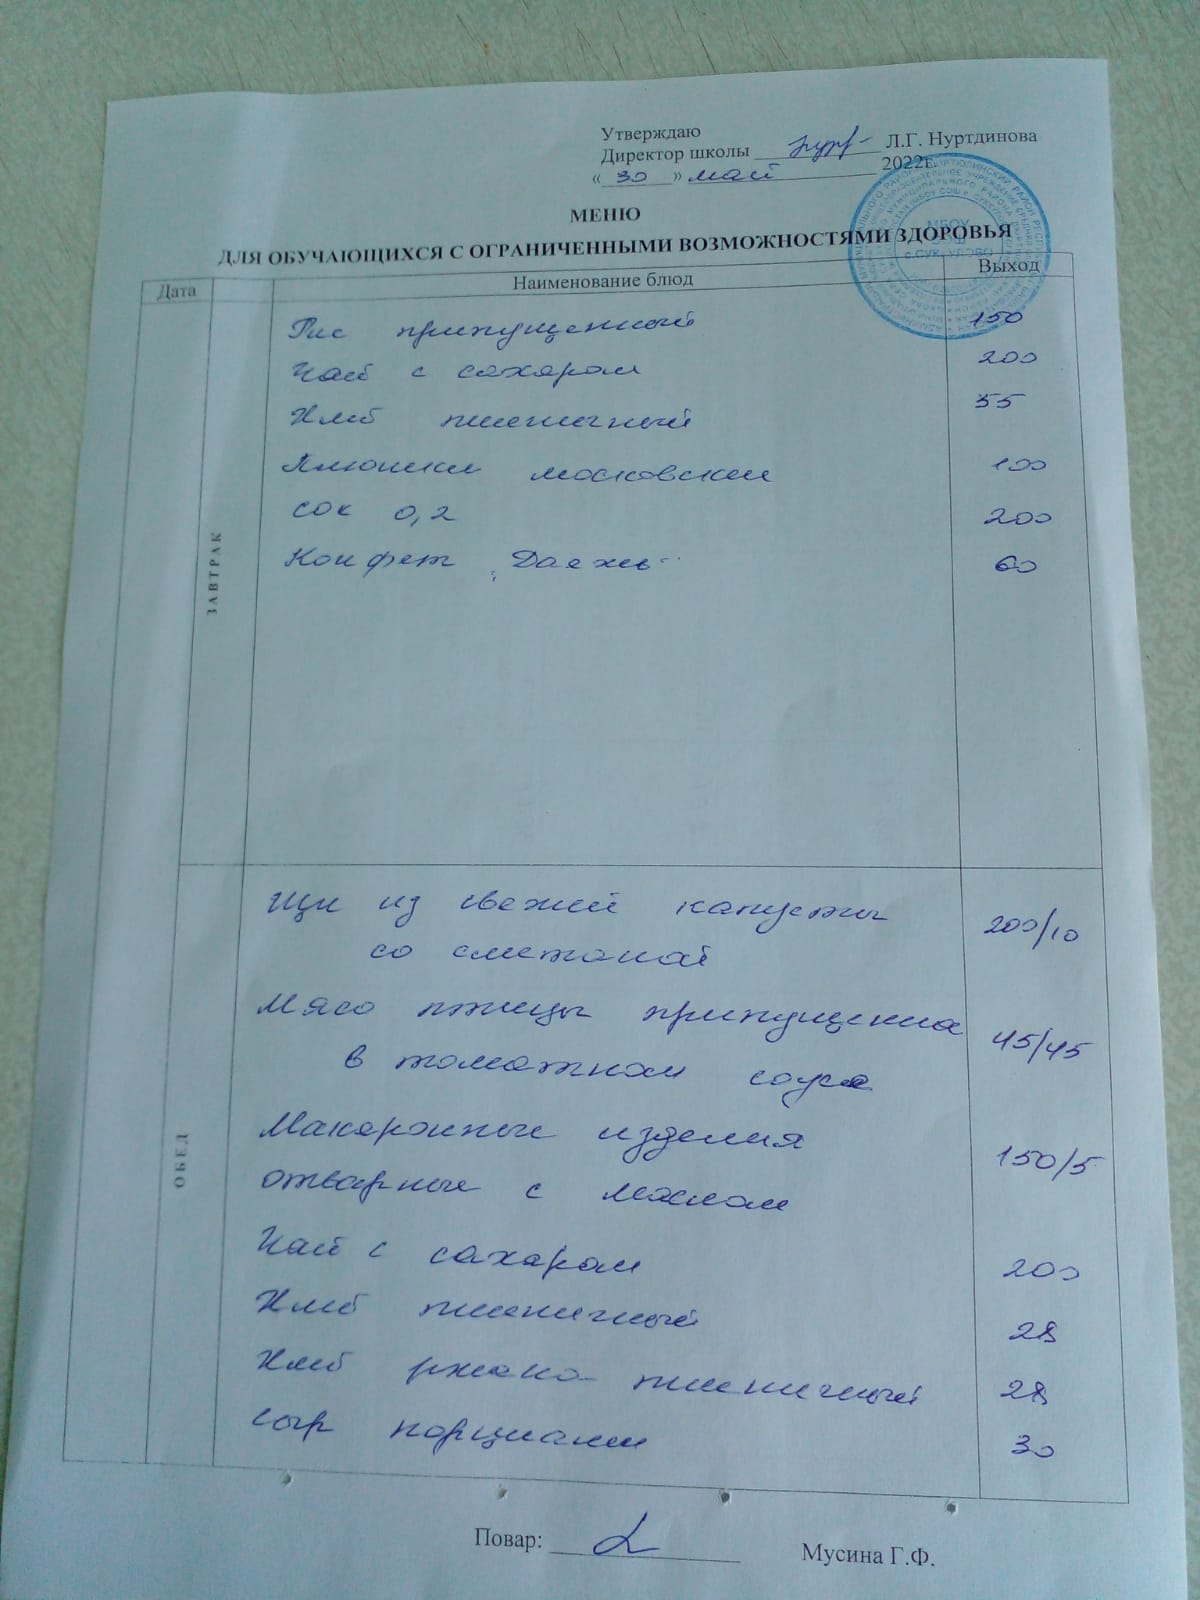 Утверждаю
Директор школы Л.Г. Нуртдинова
« 30 » май 2022г.
МЕНЮ
ДЛЯ ОБУЧАЮЩИХСЯ С ОГРАНИЧЕННЫМИ ВОЗМОЖНОСТЯМИ ЗДОРОВЬЯ
МБОУ
Дата Наименование блюд Выход
ЗАВТРАК
Рис припущенный 150
Чай с сахаром 200
Хлеб пшеничный 55
Плюшки московская 100
сок 0,2 200
Конфет 60
ОБЕД
Щи из свежей капусты 200/10
со сметаной
Мясо птицы припущенна 45/45
в томатном соусе
Макаронные изделия 150/5
отварные с маслом
Чай с сахаром 200
Хлеб пшеничный 28
Хлеб ржано-пшеничный 28
сыр порциями 30
Повар: Мусина Г.Ф.